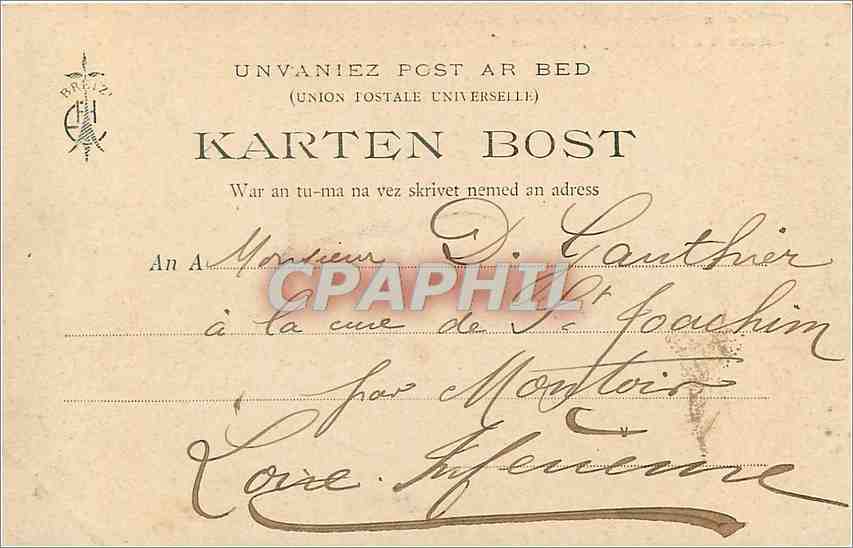 BREIZ
UNVANIEZ POST AR BED
(UNION POSTALE UNIVERSELLE)
KARTEN BOST
War an tu-ma na vez skrivet nemed an adress
An A Monsieur D. Gauthier
CPAPHIL
à la cure de St Joachim
par Montoir
Loire. Inférieure